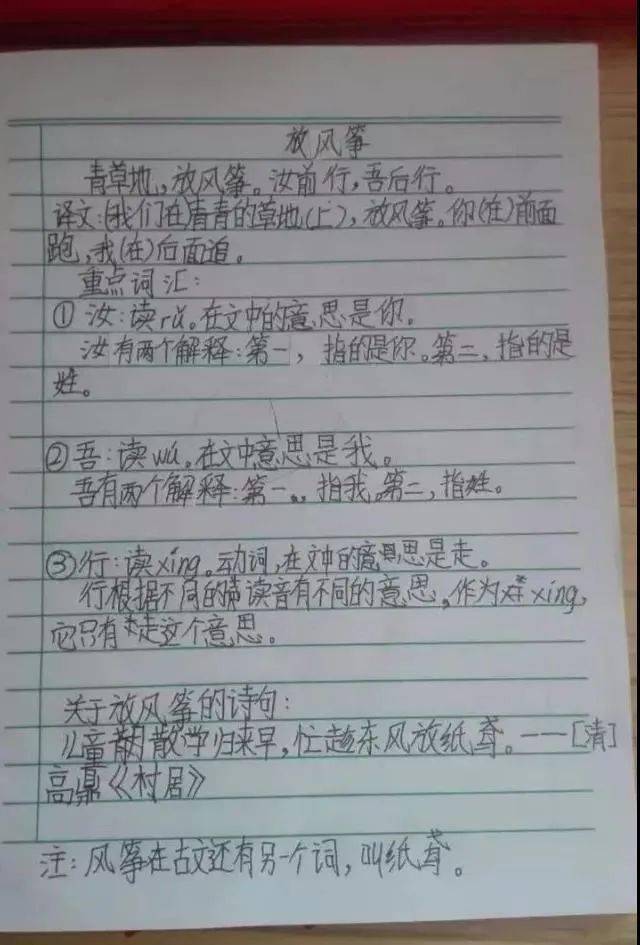 放风筝
青草地,放风筝。汝前行,吾后行。
译文:(我们在)青青的草地(上),放风筝。你(在)前面
跑,我(在)后面追。
重点词汇:
① 汝:读rǔ。在文中的意思是你。
汝有两个解释:第一,指的是你。第二,指的是
姓。
②吾:读wú。在文中意思是我。
吾有两个解释:第一,指我。第二,指姓。
③行:读xíng。动词,在文中的意思是走。
行根据不同的读音有不同的意思。作为xíng,
它只有走这个意思。
关于放风筝的诗句:
儿童散学归来早,忙趁东风放纸鸢。——[清]
高鼎《村居》
注:风筝在古文还有另一个词,叫纸鸢。